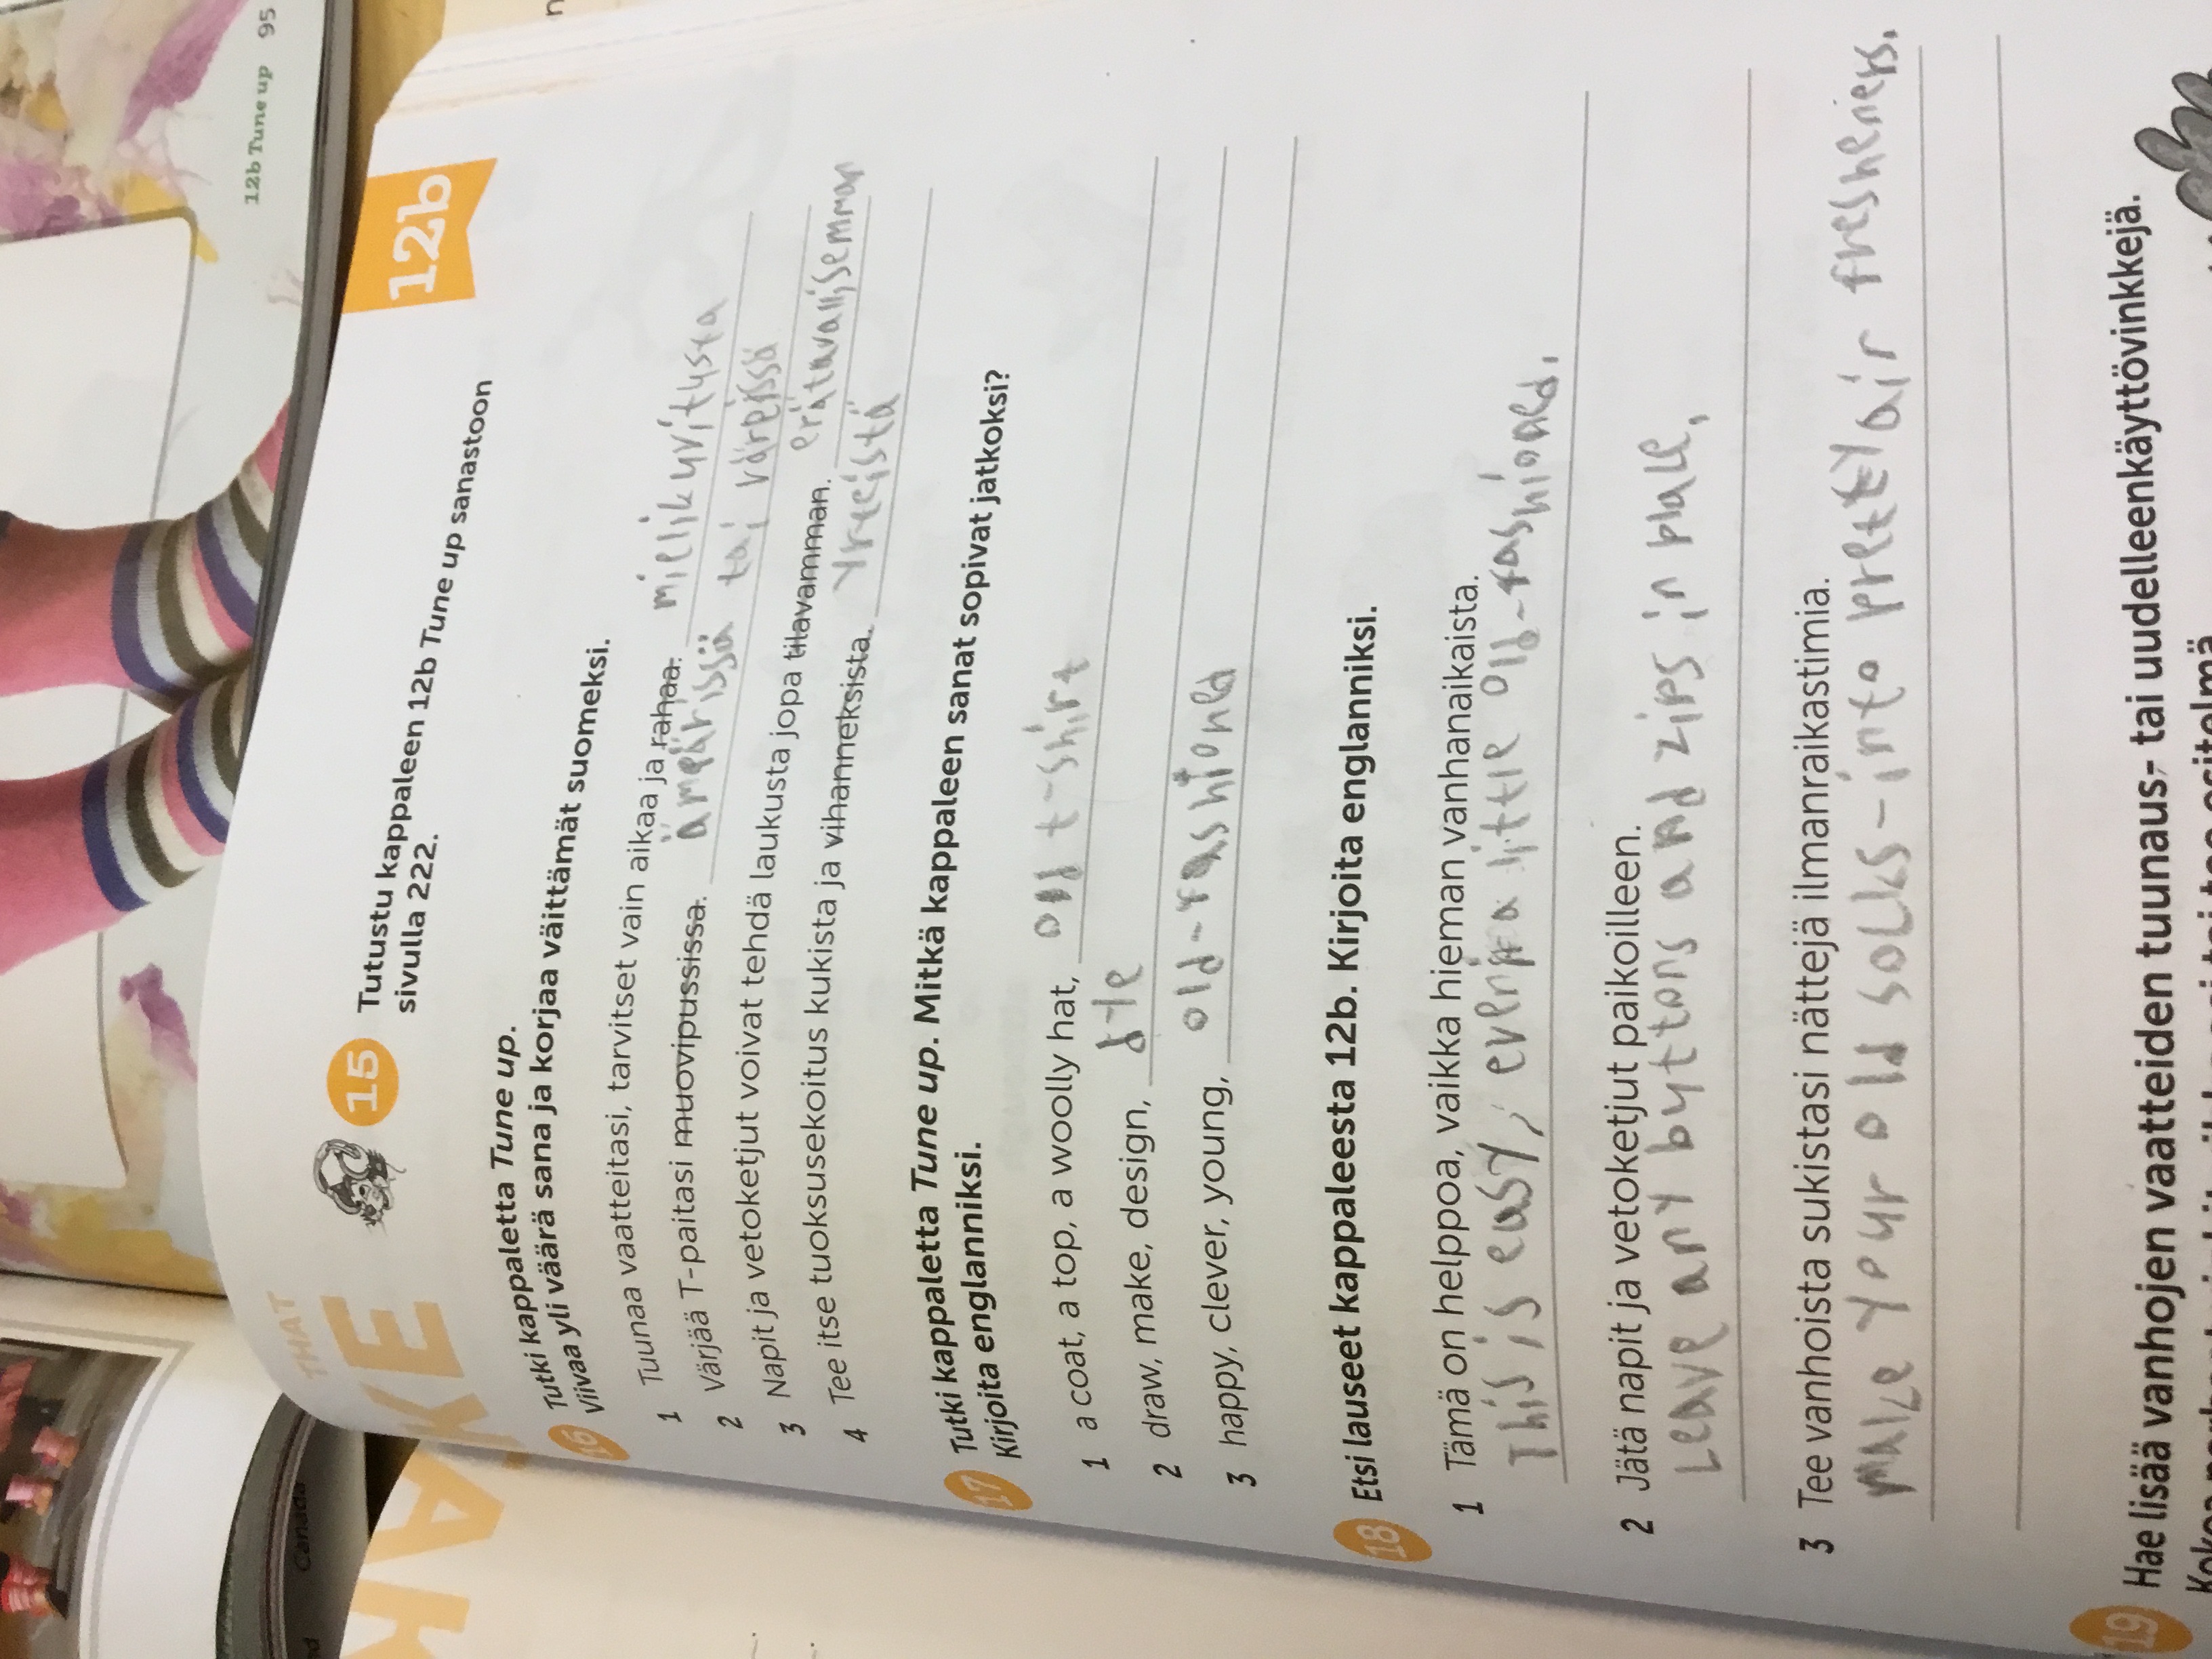 12b Tune up 95
12b
THAT
15 Tutustu kappaleen 12b Tune up sanastoon
sivulla 222.
16 Tutki kappaletta Tune up.
Viivaa yli väärä sana ja korjaa väittämät suomeksi.
1 Tuunaa vaatteitasi, tarvitset vain aikaa ja rahaa. mielikuvitusta
2 Värjää T-paitasi muovipussissa. ämpärissä tai väreissä
3 Napit ja vetoketjut voivat tehdä laukusta jopa tilavamman. erätavallisemman
4 Tee itse tuoksusekoitus kukista ja vihanneksista. yrteistä
17 Tutki kappaletta Tune up. Mitkä kappaleen sanat sopivat jatkoksi?
Kirjoita englanniksi.
1 a coat, a top, a woolly hat, old t-shirt
2 draw, make, design,
3 happy, clever, young, old-fashioned
18 Etsi lauseet kappaleesta 12b. Kirjoita englanniksi.
1 Tämä on helppoa, vaikka hieman vanhanaikaista.
This is easy, even if a little old-fashioned.
2 Jätä napit ja vetoketjut paikoilleen.
Leave any byttons and zips in place.
3 Tee vanhoista sukistasi nättejä ilmanraikastimia.
Make your old socks into pretty air
19 Hae lisää vanhojen vaatteiden tuunaus- tai uudelleenkäyttövinkkejä.
Canada